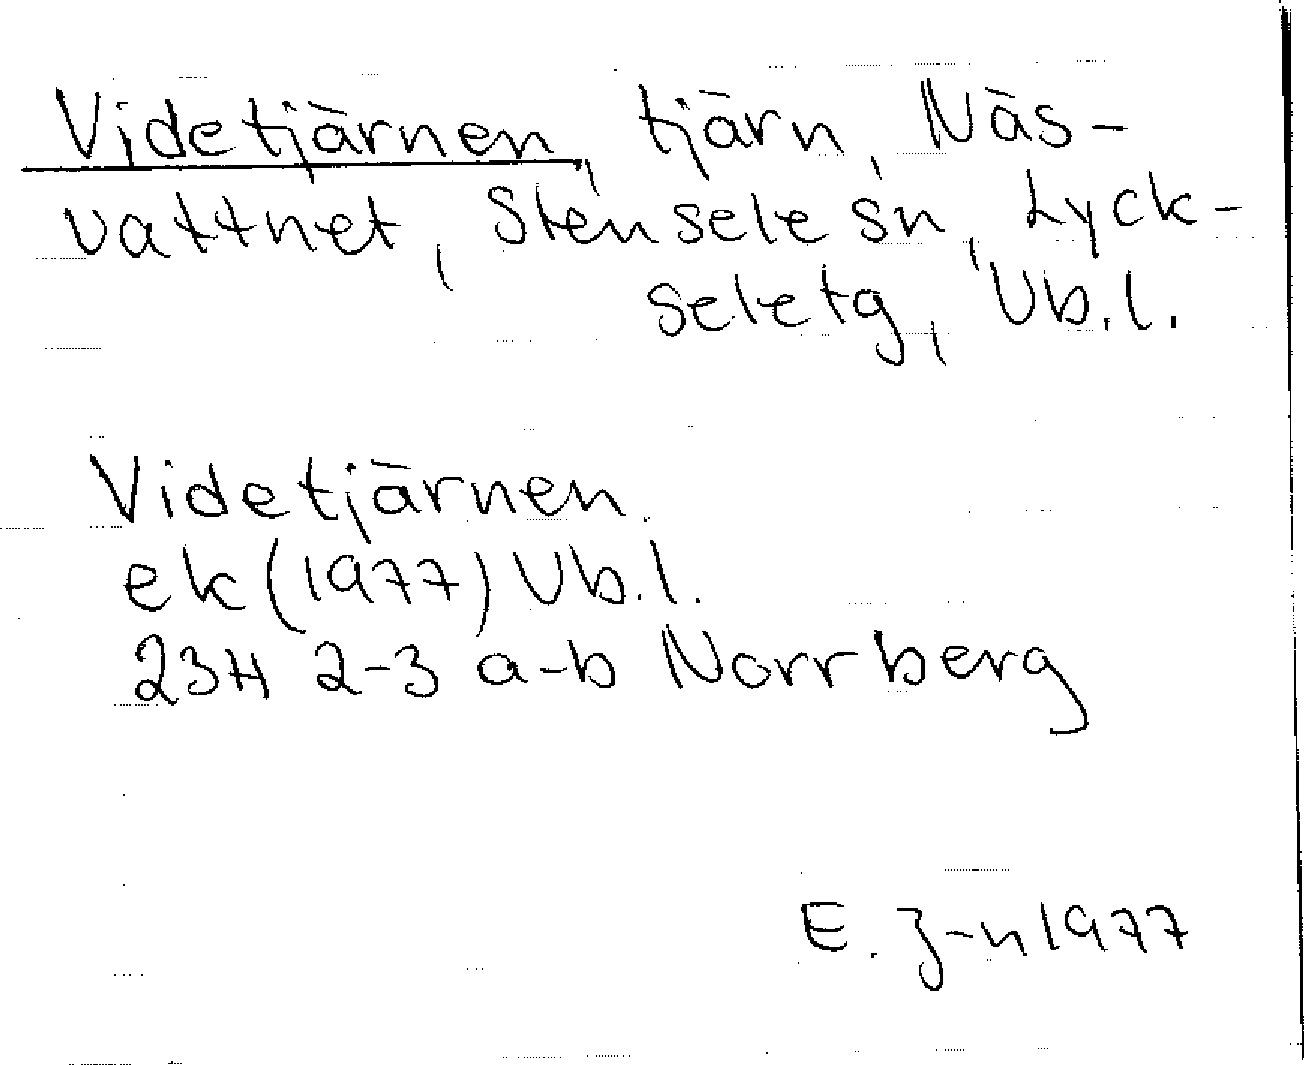 Videtjärnen, tjärn, Näs-
vattnet, Stensele sn, Lyck-
seletg, Vb.l.
Videtjärnen
ek (1977) Vb.l.
23H 2-3 a-b Norrberg
E. J-n 1977